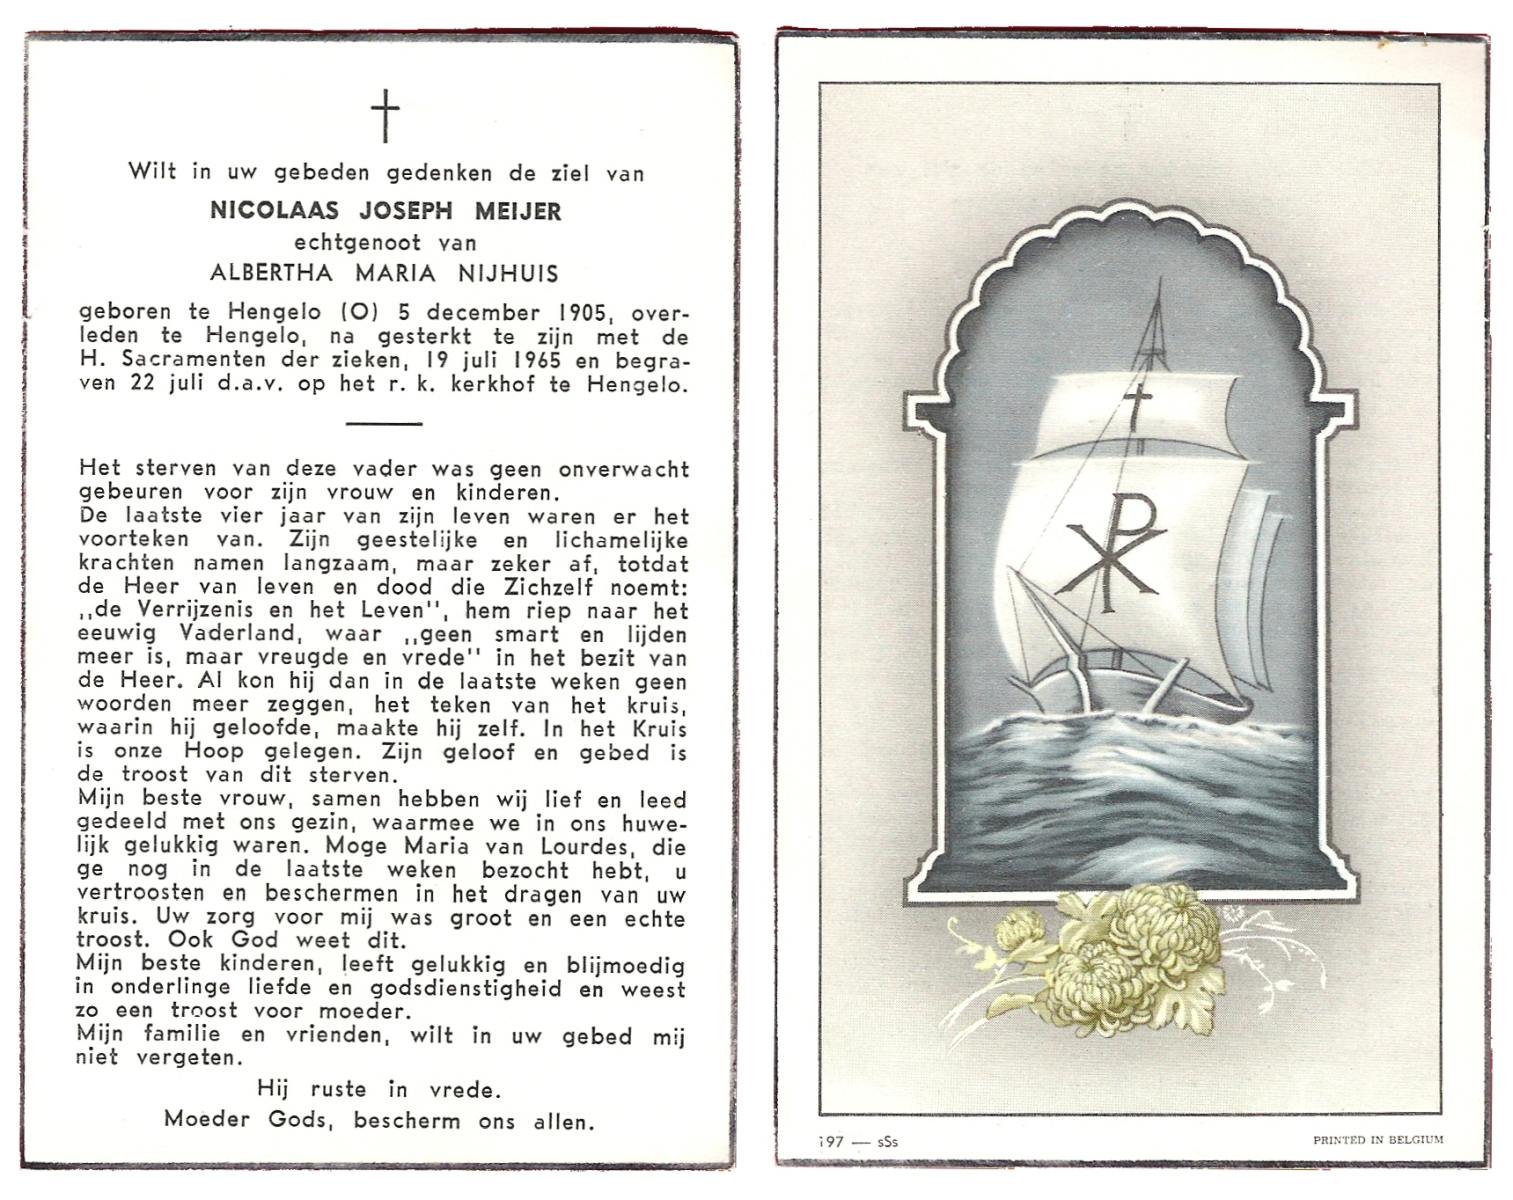 Wilt in uw gebeden gedenken de ziel van
NICOLAAS JOSEPH MEIJER
echtgenoot van
ALBERTHA MARIA NIJHUIS
geboren te Hengelo (O) 5 december 1905, over-
leden te Hengelo, na gesterkt te zijn met de
H. Sacramenten der zieken, 19 juli 1965 en begra-
ven 22 juli d.a.v. op het r. k. kerkhof te Hengelo.
Het sterven van deze vader was geen onverwacht
gebeuren voor zijn vrouw en kinderen.
De laatste vier jaar van zijn leven waren er het
voorteken van. Zijn geestelijke en lichamelijke
krachten namen langzaam, maar zeker af, totdat
de Heer van leven en dood die Zichzelf noemt:
,,de Verrijzenis en het Leven'', hem riep naar het
eeuwig Vaderland, waar ,,geen smart en lijden
meer is, maar vreugde en vrede'' in het bezit van
de Heer. Al kon hij dan in de laatste weken geen
woorden meer zeggen, het teken van het kruis,
waarin hij geloofde, maakte hij zelf. In het Kruis
is onze Hoop gelegen. Zijn geloof en gebed is
de troost van dit sterven.
Mijn beste vrouw, samen hebben wij lief en leed
gedeeld met ons gezin, waarmee we in ons huwe-
lijk gelukkig waren. Moge Maria van Lourdes, die
ge nog in de laatste weken bezocht hebt, u
vertroosten en beschermen in het dragen van uw
kruis. Uw zorg voor mij was groot en een echte
troost. Ook God weet dit.
Mijn beste kinderen, leeft gelukkig en blijmoedig
in onderlinge liefde en godsdienstigheid en weest
zo een troost voor moeder.
Mijn familie en vrienden, wilt in uw gebed mij
niet vergeten.
Hij ruste in vrede.
Moeder Gods, bescherm ons allen.
197 — sSs
PRINTED IN BELGIUM